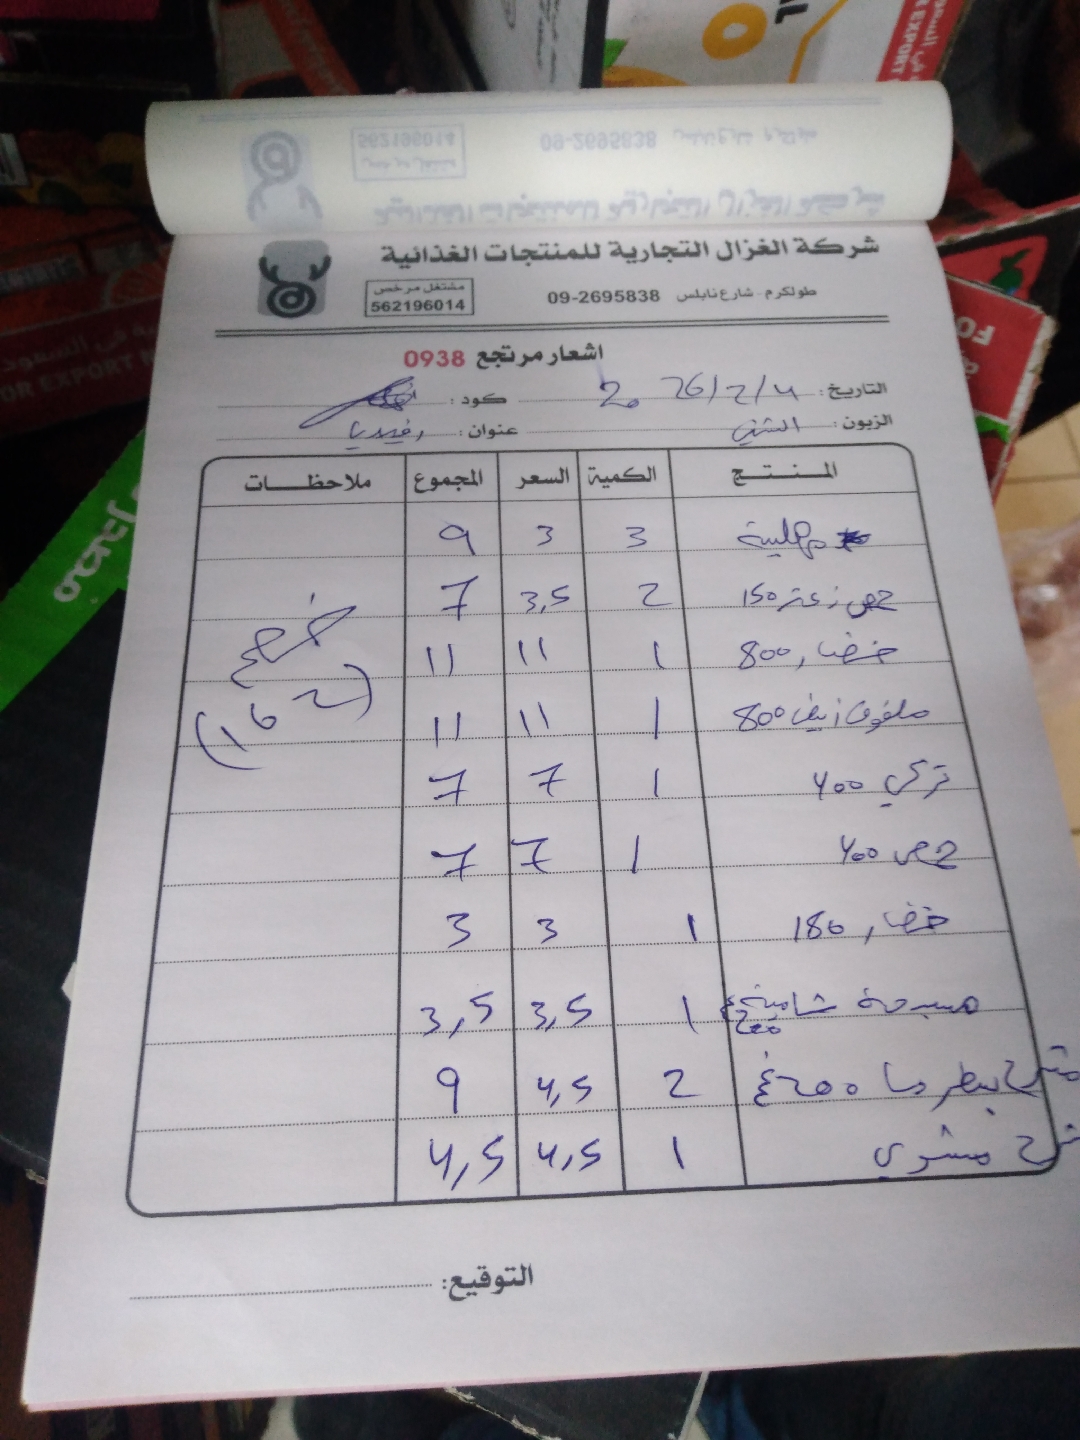 شركة الغزال التجارية للمنتجات الغذائية
طولكرم - شارع نابلس 09-2695838
مشتغل مرخص
562196014
اشعار مرتجع 0938
التاريخ: 4/2/2026 كود:
الزبون: عنوان: رفيديا
المنتج الكمية السعر المجموع ملاحظات
مهلبية 3 3 9
حمص زعتر 150 2 3,5 7
خضار 800 1 11 11
ملفوف ابيض 800 1 11 11
تركي 400 1 7 7
حمص 400 1 7 7
خضار 180 1 3 3
مسبحة شامية 1 3,5 3,5
2 4,5 9
مشوي 1 4,5 4,5
التوقيع:
FOR EXPORT